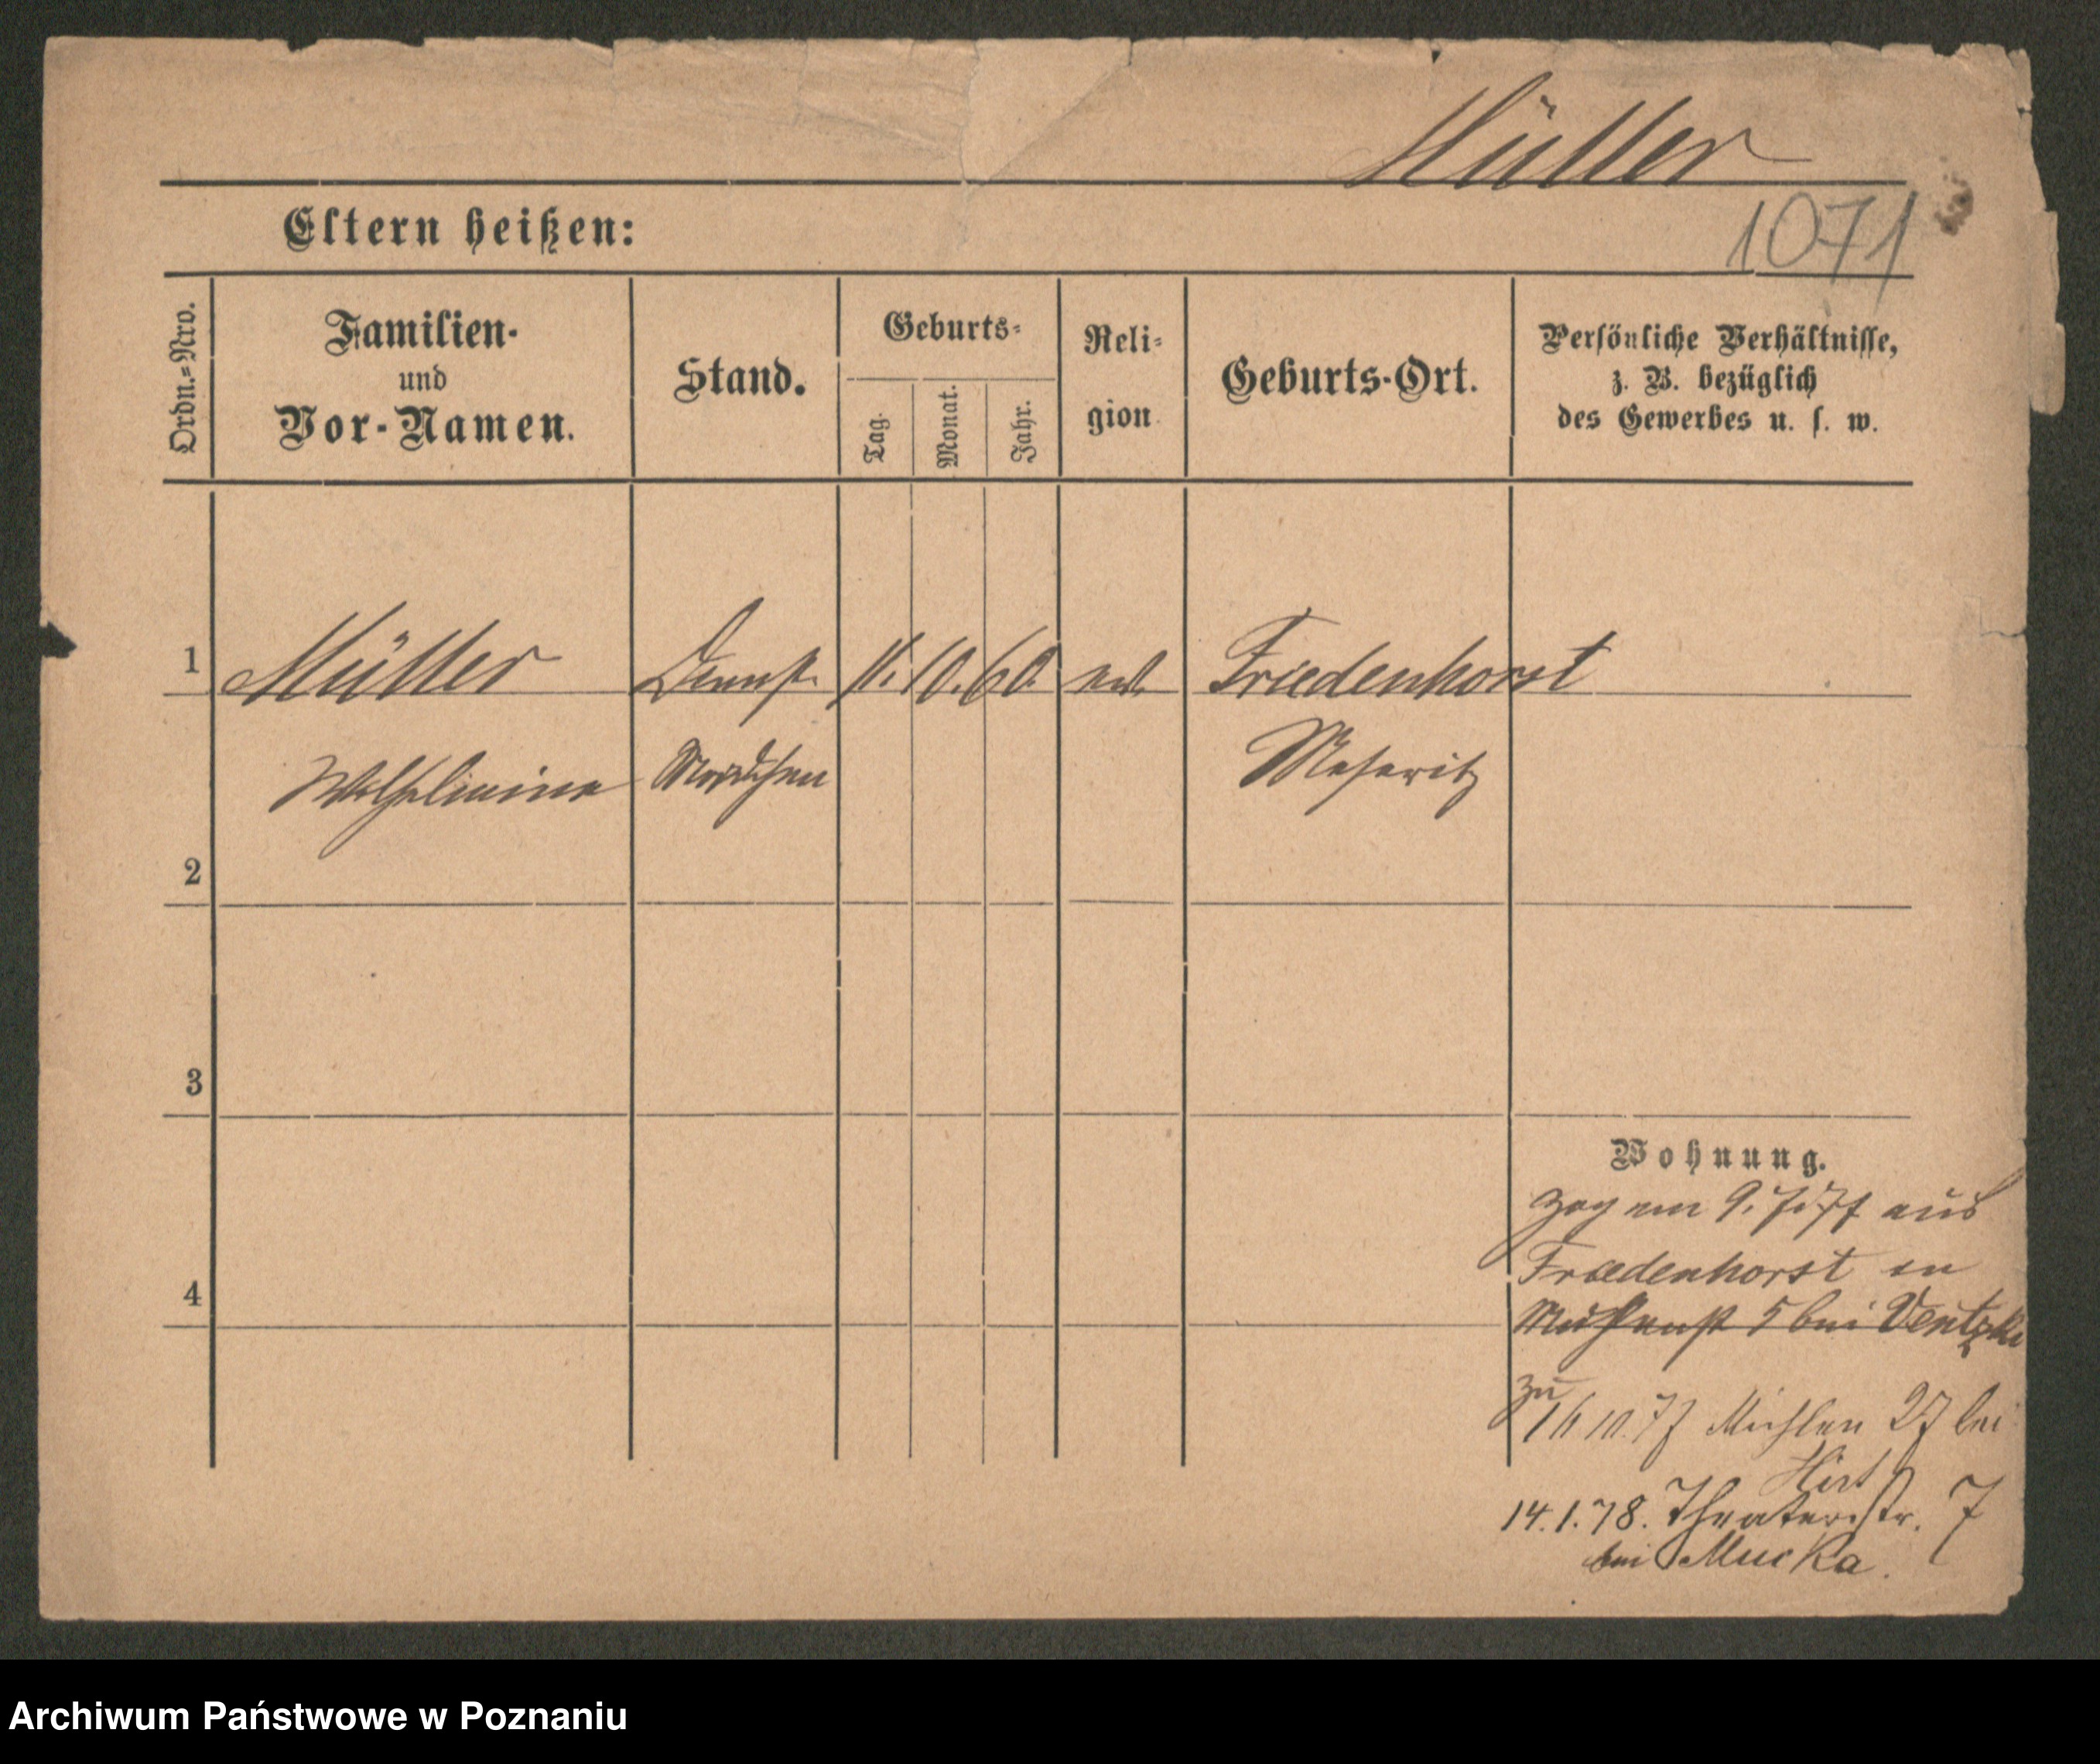 Müller
Eltern heißen:
1071
Ordn.=Nro.
Familien-
und
Vor-Namen.
Stand.
Geburts=
Tag.
Monat.
Jahr.
Reli=
gion
Geburts-Ort.
Persönliche Verhältnisse,
z. B. bezüglich
des Gewerbes u. s. w.
1 Müller Dienst 10. 60. ev. Friedenhorst
Wilhelmine Mädchen Meseritz
2
3
Wohnung.
zog am 9. aus
Friedenhorst in
4
5 bei Ventzki
zu
10. 77 Mühlen 27 bei
Hirt
14. 1. 78. Theaterstr. 7
bei Mucka.
Archiwum Państwowe w Poznaniu